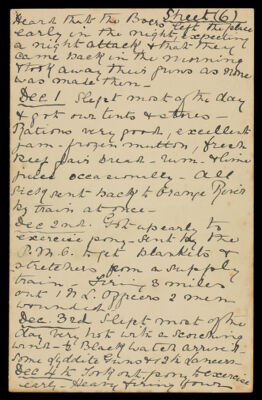 Sheet (6)
Heard that the Boers left the place
early in the night, expecting
a night attack & that they
came back in the morning
& took away their guns as none
was made then -
Dec 1 Slept most of the day
& got our tents & stores -
Rations very good, excellent
jam - frozen mutton, fresh
bread - rum - & lime
juice occasionally - All
sick sent back to Orange River
by train at once -
Dec 2nd. Got up early to
exercise pony - Sent by the
P.M.O. to get blankets &
stretchers from a supply
train - Firing 3 miles
out N.L. Officers 2 men
wounded
Dec. 3rd Slept most of the
day very hot with a scorching
wind - Black Watch arrive -
Some Lyddite Guns & 12th Lancers -
Dec 4th Took out pony to exercise
early - Heavy firing four